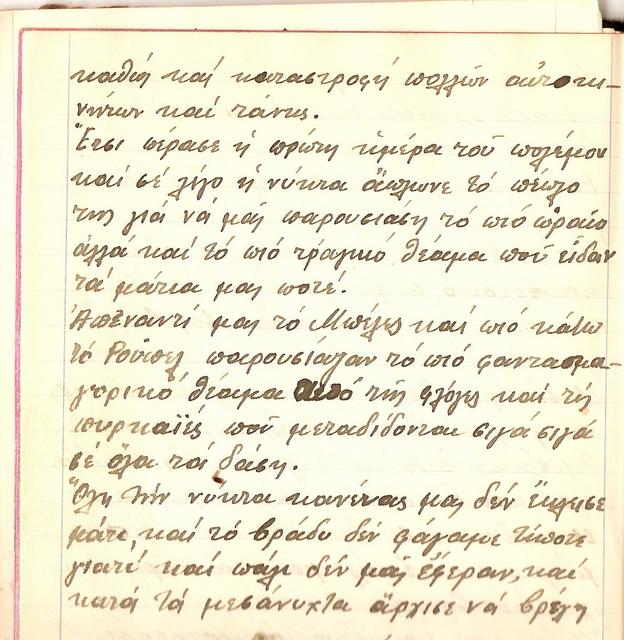 καθώς καί καταστροφή πολλῶν αὐτοκι-
νήτων καί τάνκς.
Ἔτσι πέρασε ἡ πρώτη ἡμέρα τοῦ πολέμου
καί σέ λίγο ἡ νύκτα ἅπλωνε τό πέπλο
της γιά νά μᾶς παρουσιάση τό πιό ὡραῖο
ἀλλά καί τό πιό τραγικό θέαμα πού εἶδαν
τά μάτια μας ποτέ.
Ἀπέναντί μας τό Μπέλες καί πιό κάτω
τό Ρούπελ παρουσιάζαν τό πιό φαντασμα-
γορικό θέαμα ἀπό τίς φλόγες καί τίς
πυρκαϊές πού μεταδίδονται σιγά σιγά
σέ ὅλα τά δάση.
Ὅλη τήν νύκτα κανένας μας δέν ἔκλεισε
μάτι, καί τό βράδυ δέν φάγαμε τίποτε
γιατί καί πάλι δέν μᾶς ἔφεραν, καί
κατά τά μεσάνυχτα ἄρχισε νά βρέχη